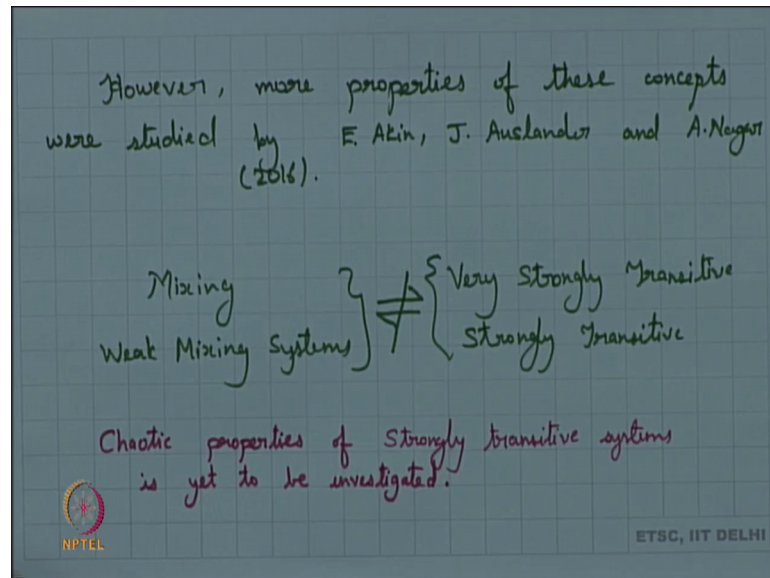 However, more properties of these concepts
were studied by E. Akin, J. Auslander and A. Nagar
(2016).
Mixing
Weak Mixing Systems
⇎
Very Strongly Transitive
Strongly Transitive
Chaotic properties of Strongly transitive systems
is yet to be investigated.
NPTEL
ETSC, IIT DELHI